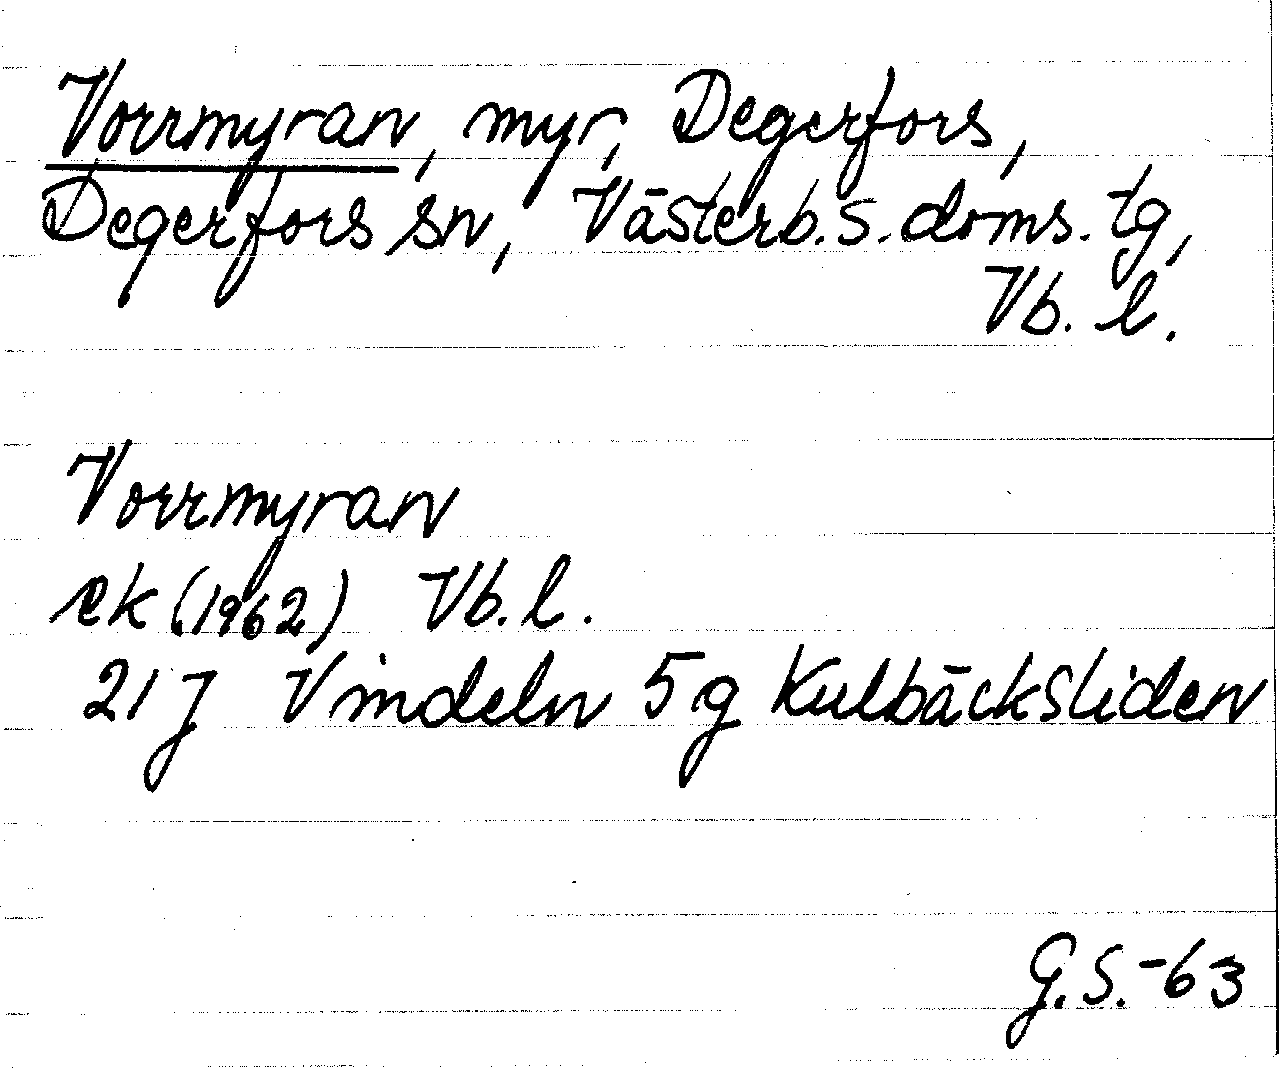 Vorrmyran, myr, Degerfors,
Degerfors sn, Västerb. s. doms. tg,
Vb. l.
Vorrmyran
ek (1962) Vb. l.
21 J Vindeln 5 g Kulbäcksliden
G.S. -63